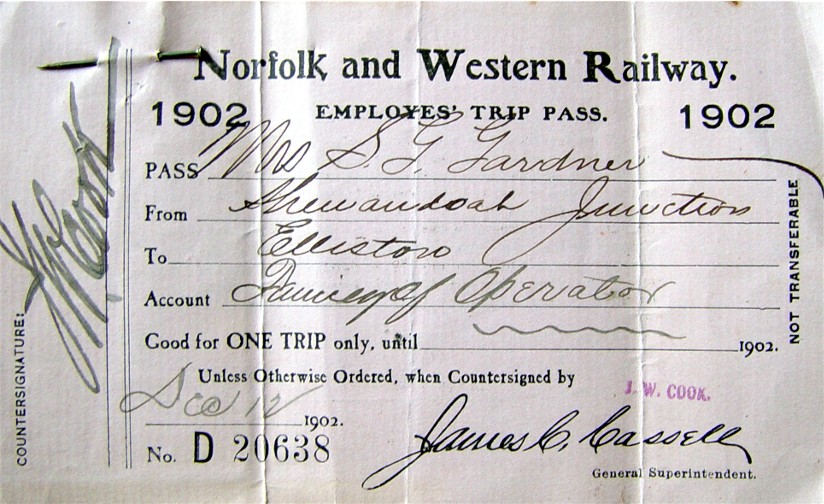 Norfolk and Western Railway.
1902 EMPLOYES' TRIP PASS. 1902
PASS Mrs S. G. Gardner
From Shenandoah Junction
To Elliston
Account Family of Operator
Good for ONE TRIP only, until 1902.
Unless Otherwise Ordered, when Countersigned by
J. W. COOK.
Dec 12 1902.
No. D 20638
James C. Cassell
General Superintendent.
NOT TRANSFERABLE
COUNTERSIGNATURE:
JW Cook